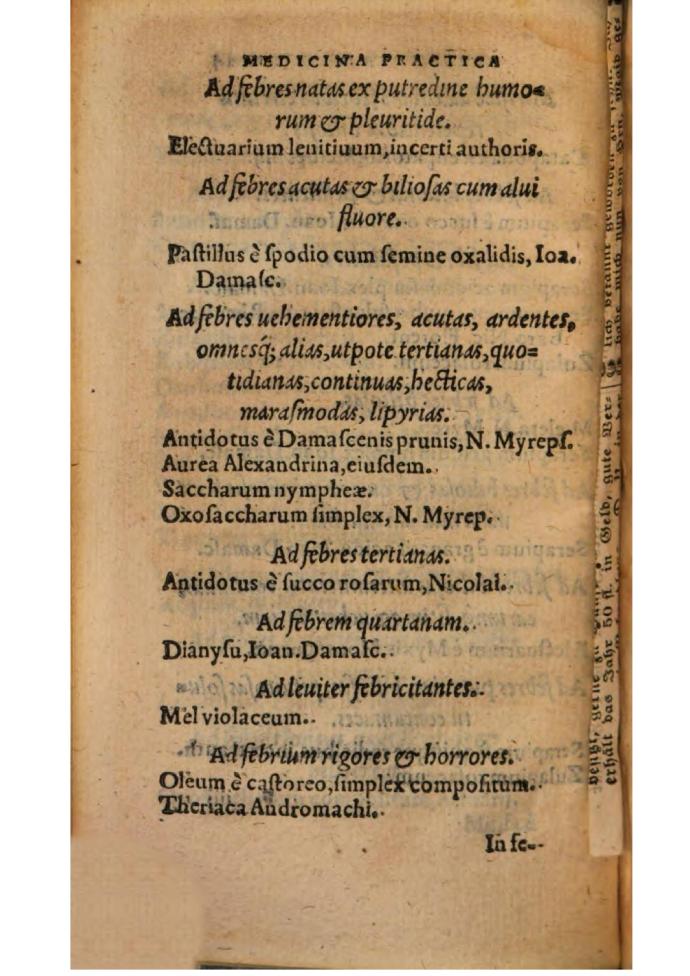 MEDICINA PRACTICA
Ad febres natas ex putredine humo=
rum & pleuritide.
Electuarium lenitiuum, incerti authoris.
Ad febres acutas & bilioſas cum alui
fluore.
Paſtillus è ſpodio cum ſemine oxalidis, Ioa.
Damaſc.
Ad febres uehementiores, acutas, ardentes,
omnesq́; alias, utpote tertianas, quo=
tidianas, continuas, hecticas,
maraſmodas, lipyrias.
Antidotus è Damaſcenis prunis, N. Myrepſ.
Aurea Alexandrina, eiuſdem.
Saccharum nympheæ.
Oxoſaccharum ſimplex, N. Myrep.
Ad febres tertianas.
Antidotus è ſucco roſarum, Nicolai.
Ad febrem quartanam.
Dianyſu, Ioan. Damaſc.
Ad leuiter febricitantes.
Mel violaceum.
Ad febrium rigores & horrores.
Oleum è caſtoreo, ſimplex compoſitum.
Theriaca Andromachi.
In fe-
erhält das Jahr 50 fl. in Geld, gute Ver-